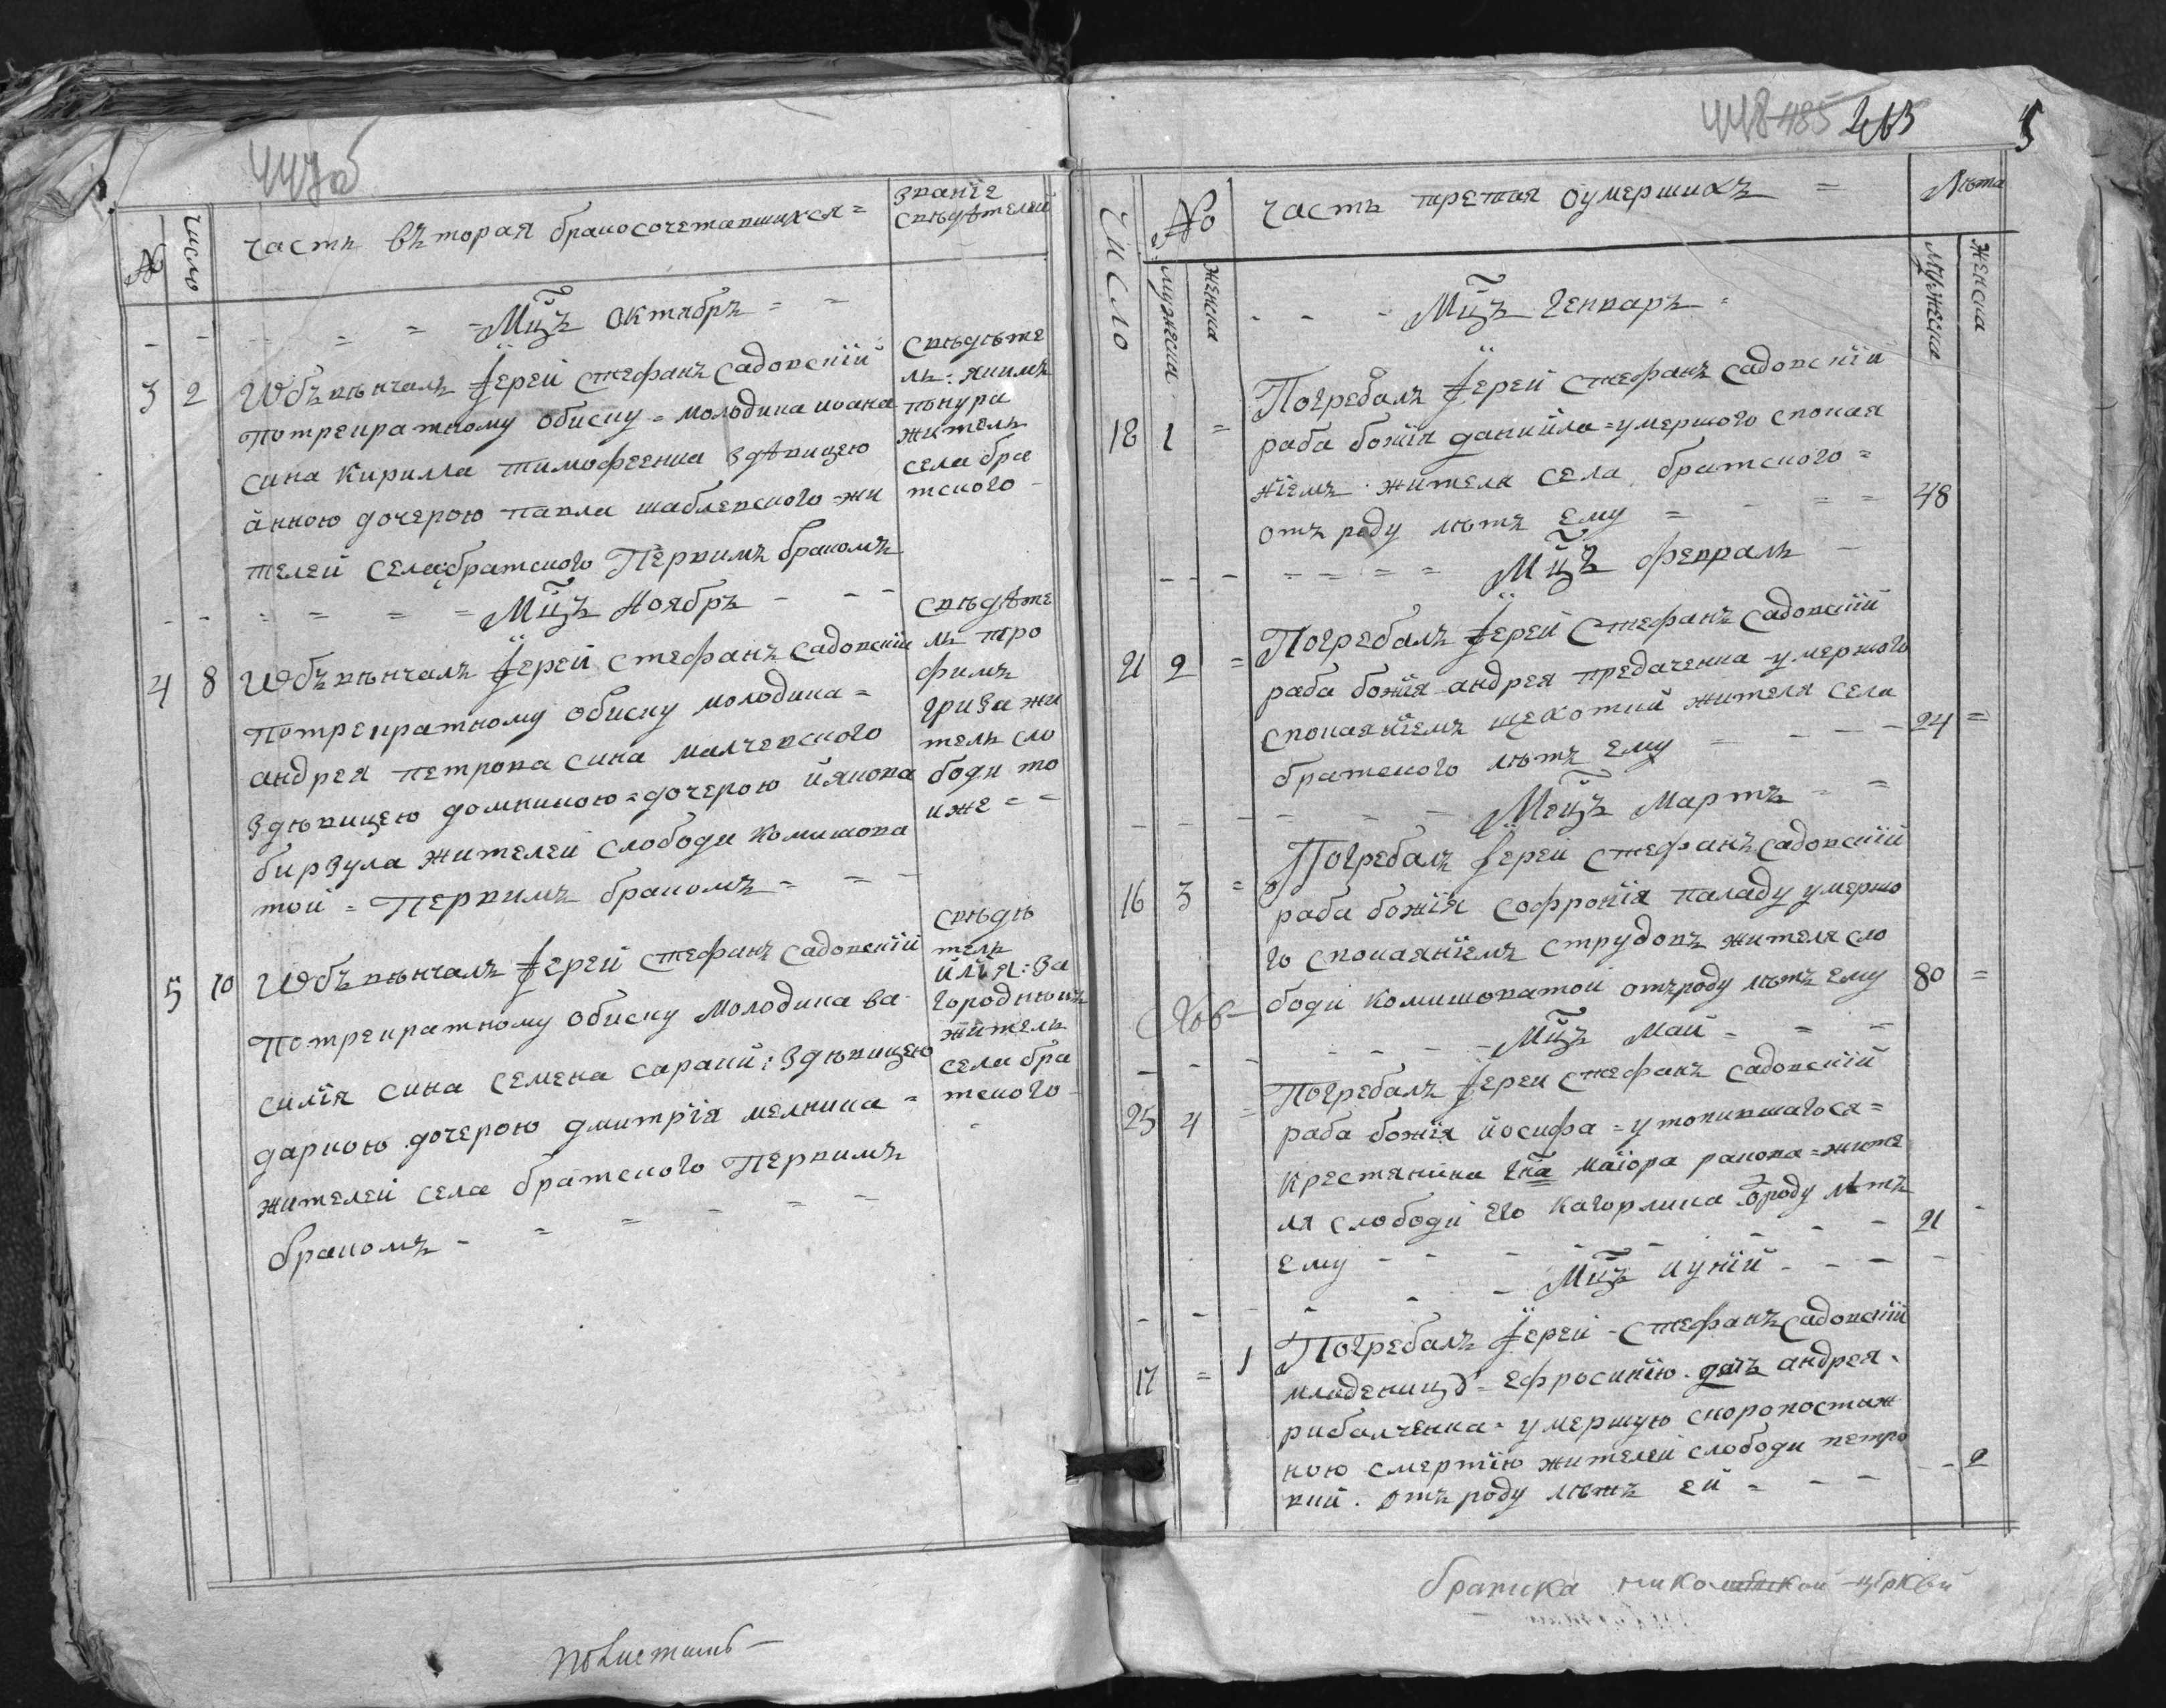 447об
№
число
часть вѣторая бракосочетавшихся =
званїе
свѣдѣтелей
Мц̃ъ Октябръ = =
3 2 Ѡбъвѣнчалъ Їерей стефанъ садовскїй
потрекратному обиску = молодика иоана
сина Кирилла тимофеенка здѣвицею
анною дочерою павла шаблевского = жи
телей села братского Первимъ бракомъ
свѣдѣте
ль: якимъ
понура
житель
села бра
тского -
Мц̃ъ Ноябръ - - -
4 8 Ѡбъвѣнчалъ Їерей стефанъ садовскїй
потрекратному обиску молодика =
андрея петрова сина малчевского
здѣвицею домникою = дочерою йякова
бирзула жителей слободи Комишова
той = Первимъ бракомъ = = -
свѣдѣте
ль тро
фимъ
гриза жи
тель сло
боди то
иже = =
5 10 Ѡбъвѣнчалъ Їерей стефанъ садовскїй
потрекратному обиску молодика ва
силїя сина семена саракй: здѣвицею
даркою дочерою дмитрїя мелника =
жителей села братского Первимъ
бракомъ - = = - = -
свѣдѣ
тель
йлїя: за
городнюкъ
житель
села бра
тского -
448 485 5
число
№
мужеска
женска
часть третая оумершихъ =
Лѣта
мужеска
женска
Мц̃ъ Генваръ =
Погребалъ Їерей стефанъ садовскїй
18 1 = раба божїя данийла = умершого спокая
нїемъ житела села братского =
отъ роду лѣтъ ему = - = = 48
Мц̃ъ февраль -
Погребалъ Їерей стефанъ садовскїй
21 2 = раба божїя андрея предаченка умершого
спокаянїемъ щехотий жителя села
братского лѣтъ ему - - - 24 =
Мсц̃ъ Мартъ = =
Погребалъ Їерей стефанъ садовскїй
16 3 = раба божїя софронїя паладу умершо
го спокаянїемъ струдовъ жителя сло
боди комишоватой отъроду лѣтъ ему 80 =
Мц̃ъ май = = =
Погребалъ Їерей стефанъ садовскїй
25 4 = раба божїя йосифа = утопившагося =
крестянина гна маїора ракова = жите
ля слободи его кагорлика ѿроду лѣтъ
ему - - - - - 21 -
Мц̃ъ иунїй - - -
Погребалъ Їерей - стефанъ садовскїй
17 = 1 младеницу = ефросинїю дщъ андрея
рибалченка = умершую скоропостиж
ною смертїю жителей слободи петро
вкй. отъ роду лѣтъ ей = - - - 2
полистамъ -
братска николаевской цркви